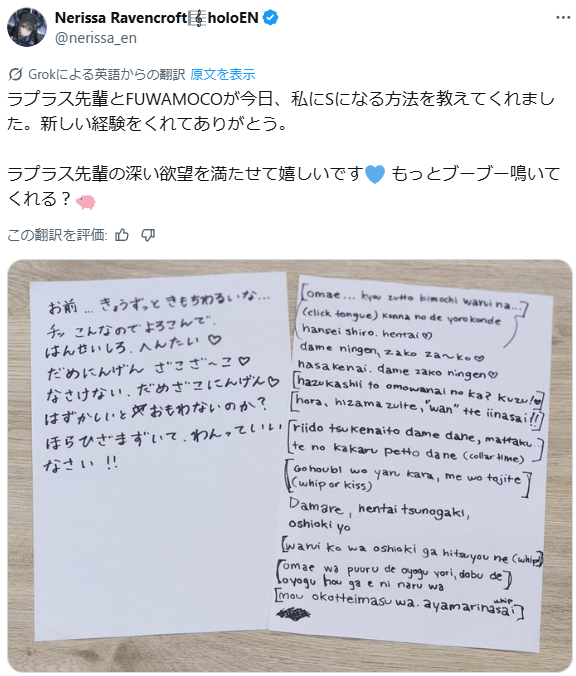 Nerissa Ravencroft🎼holoEN
@nerissa_en
Grokによる英語からの翻訳 原文を表示
ラプラス先輩とFUWAMOCOが今日、私にSになる方法を教えてくれまし
た。新しい経験をくれてありがとう。
ラプラス先輩の深い欲望を満たせて嬉しいです💙 もっとブーブー鳴いて
くれる？🐖
この翻訳を評価:
お前... きょうずっと きもちわるいな...
チッ こんなのでよろこんで.
はんせいしろ. へんたい♡
だめにんげん ざこざ〜こ♡
なさけない. だめざこにんげん♡
はずかしいと おもわないのか?
ほらひざまずいて. わんっていい
なさい !!
[omae... kyou zutto kimochi warui na...]
(click tongue) konna no de yorokonde
hansei shiro. hentai♡
dame ningen, zako za~ko♡
nasakenai. dame zako ningen♡
[hazukashii to omowanai no ka? kuzu!♡]
[hora, hizamazuite, "wan" tte iinasai!!]
[riido tsukenaito dame dane, mattaku...
te no kakaru petto dane (collar time)]
[Gohoubi wo yaru kara, me wo tojite]
(whip or kiss)
Damare, hentai tsunogaki,
oshioki yo
[warui ko wa oshioki ga hitsuyou ne (whip)]
[omae wa puuru de oyogu yori, dobu de]
oyogu hou ga e ni naru wa
[mou okotteimasu wa. ayamarinasai]
whip